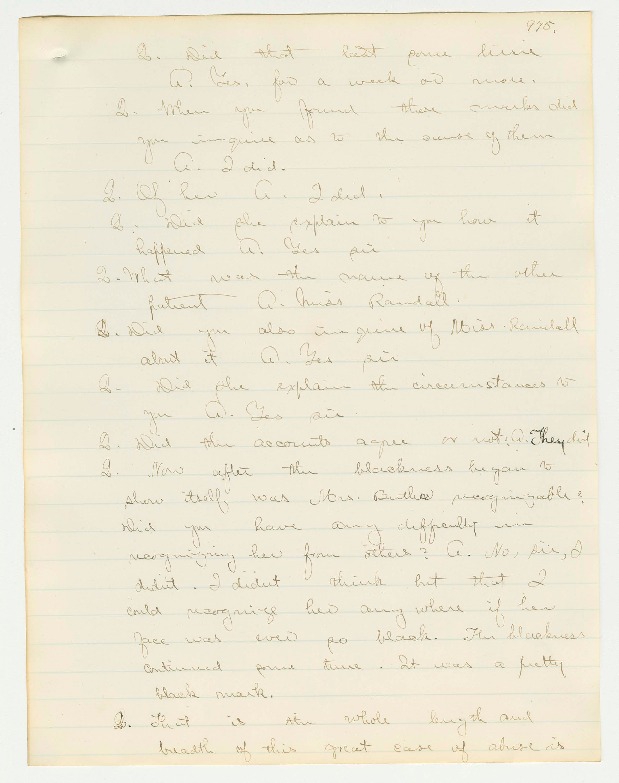 975.
Q. Did that last some time
A. Yes, for a week or more.
Q. When you found these marks did
you inquire as to the cause of them
A. I did.
Q. Of her A. I did.
Q. Did she explain to you how it
happened A. Yes sir
Q. What was the name of the other
patient A. Miss Randall.
Q. Did you also inquire of Miss Randall
about it A. Yes sir
Q. Did she explain the circumstances to
you A. Yes sir.
Q. Did the accounts agree or not? A. They did
Q. Now after the blackness began to
show itself was Mrs. Butler recognizable?
Did you have any difficulty in
recognizing her from others? A. No, sir, I
didnt. I didnt think but that I
could recognize her any where if her
face was ever so black. The blackness
continued some time. It was a pretty
black mark.
Q. That is the whole length and
breadth of this great case of abuse is